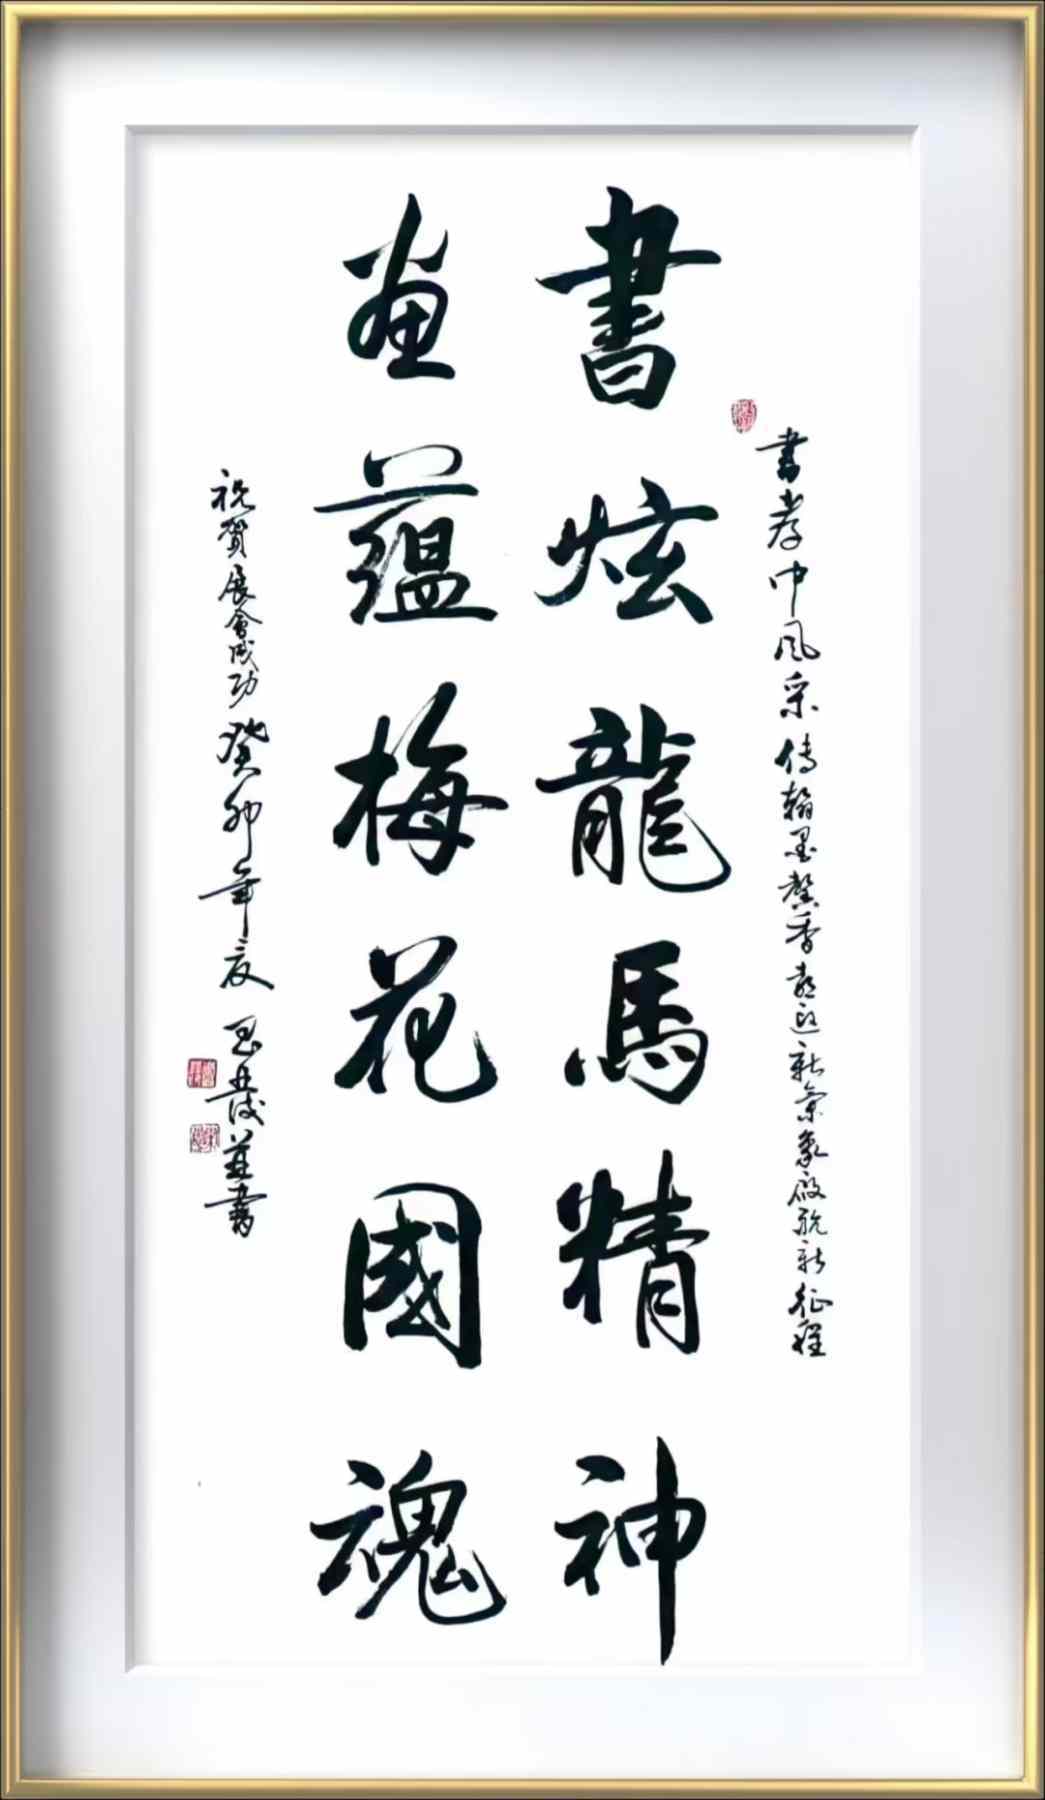 書孝中風采傳翰墨馨香喜迎新氣象啟航新征程
書炫龍馬精神
画蘊梅花國魂
祝賀展會成功癸卯年
書